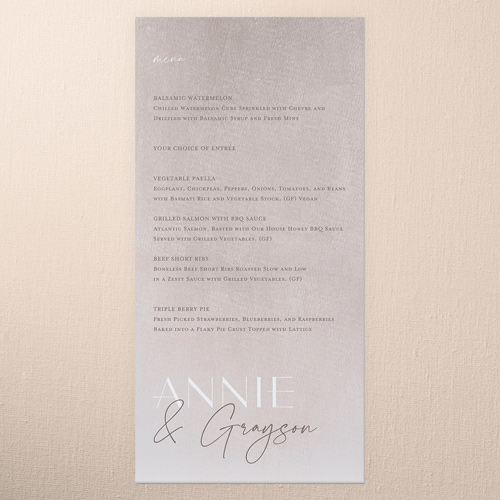 menu
BALSAMIC WATERMELON
Chilled Watermelon Cube Sprinkled with Guevre and
Drizzled with Balsamic Syrup and Fresh Mint
YOUR CHOICE OF ENTRÉE
VEGETABLE PAELLA
Eggplant, Chickpeas, Peppers, Onions, Tomatoes, and Beans
with Basmati Rice and Vegetable Stock. (GF) Vegan
GRILLED SALMON WITH BBQ SAUCE
Atlantic Salmon, Basted with Our House Honey BBQ Sauce
Served with Grilled Vegetables. (GF)
BEEF SHORT RIBS
Boneless Beef Short Ribs Roasted Slow and Low
in a Zesty Sauce with Grilled Vegetables. (GF)
TRIPLE BERRY PIE
Fresh Picked Strawberries, Blueberries, and Raspberries
Baked into a Flaky Pie Crust Topped with Lattice
ANNIE
& Grayson